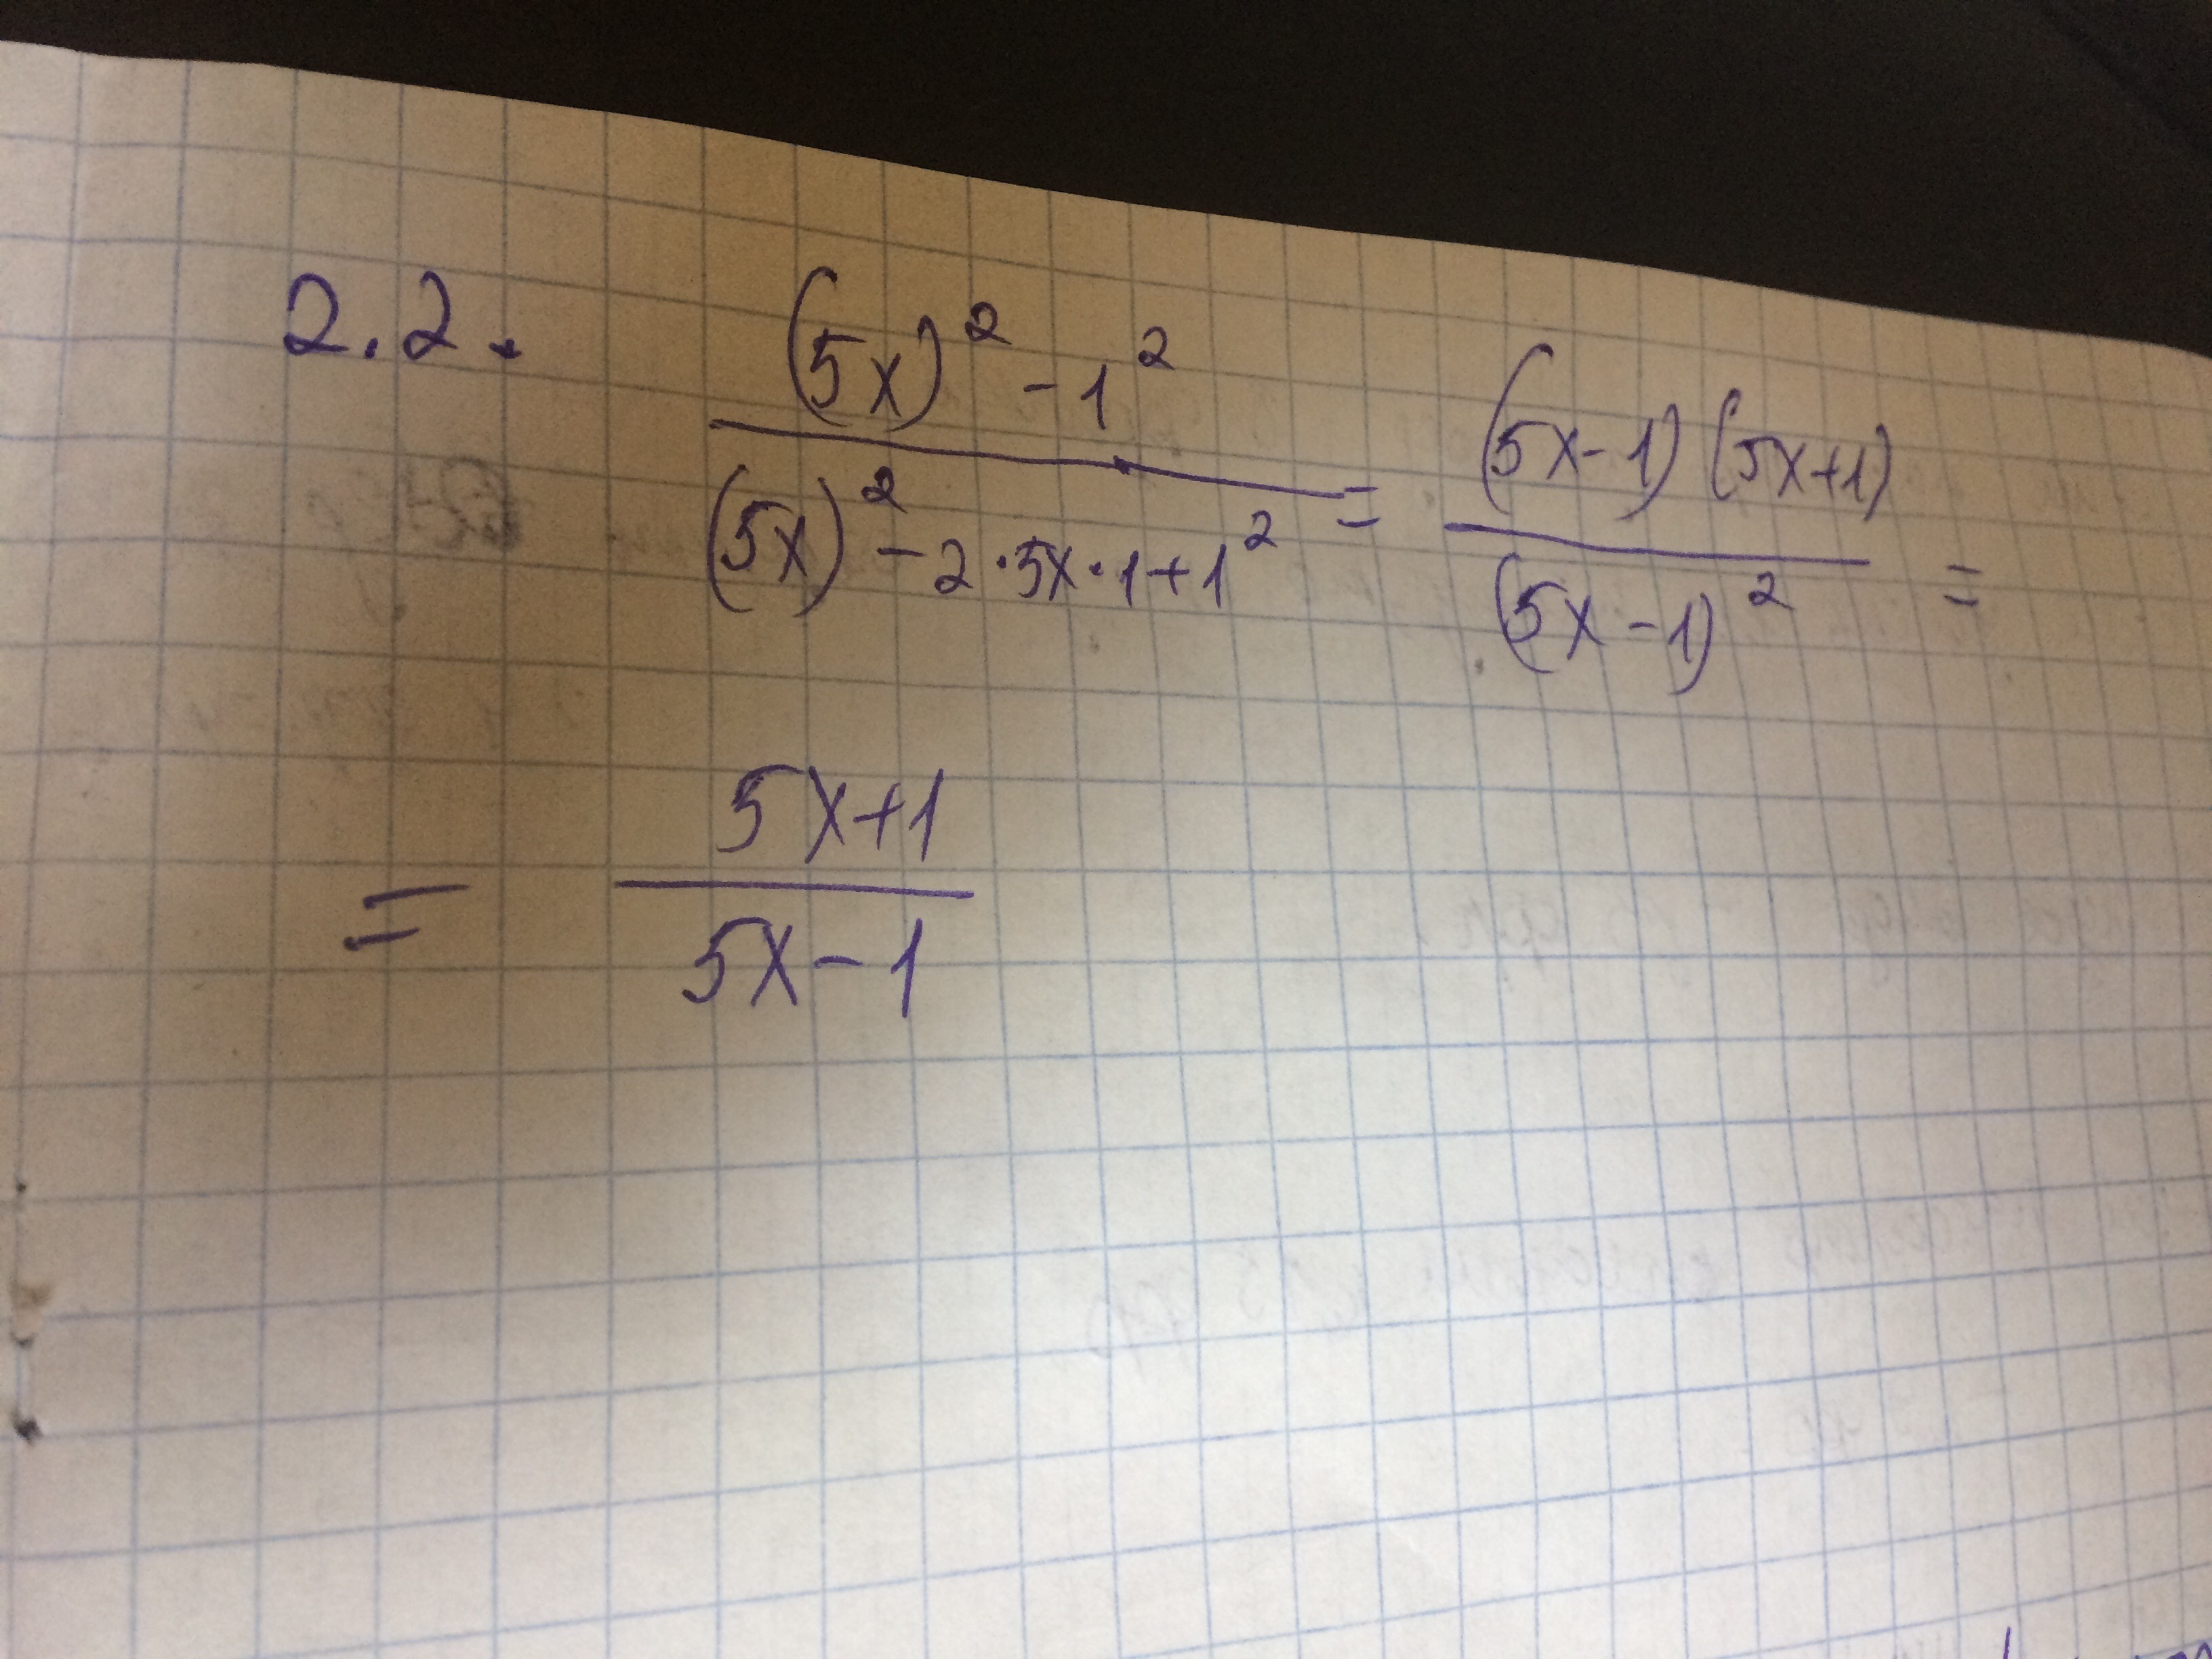 2.2. ((5x)² - 1²)/((5x)² - 2·5x·1+1²) = ((5x-1)(5x+1))/((5x-1)²) =
= (5x+1)/(5x-1)